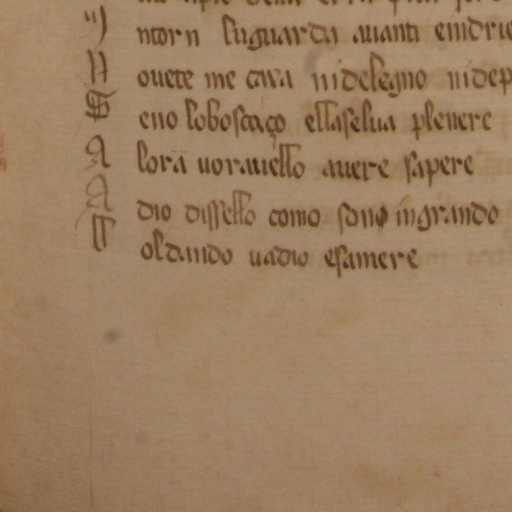 ntorn si guarda auanti eindrie
N ouete me cara nidelegno nidep
S eno loboscaço ellaselua plenere
A lora uorauello auere sapere
A dio dissello como sono ingrando
oldando uadio esamere